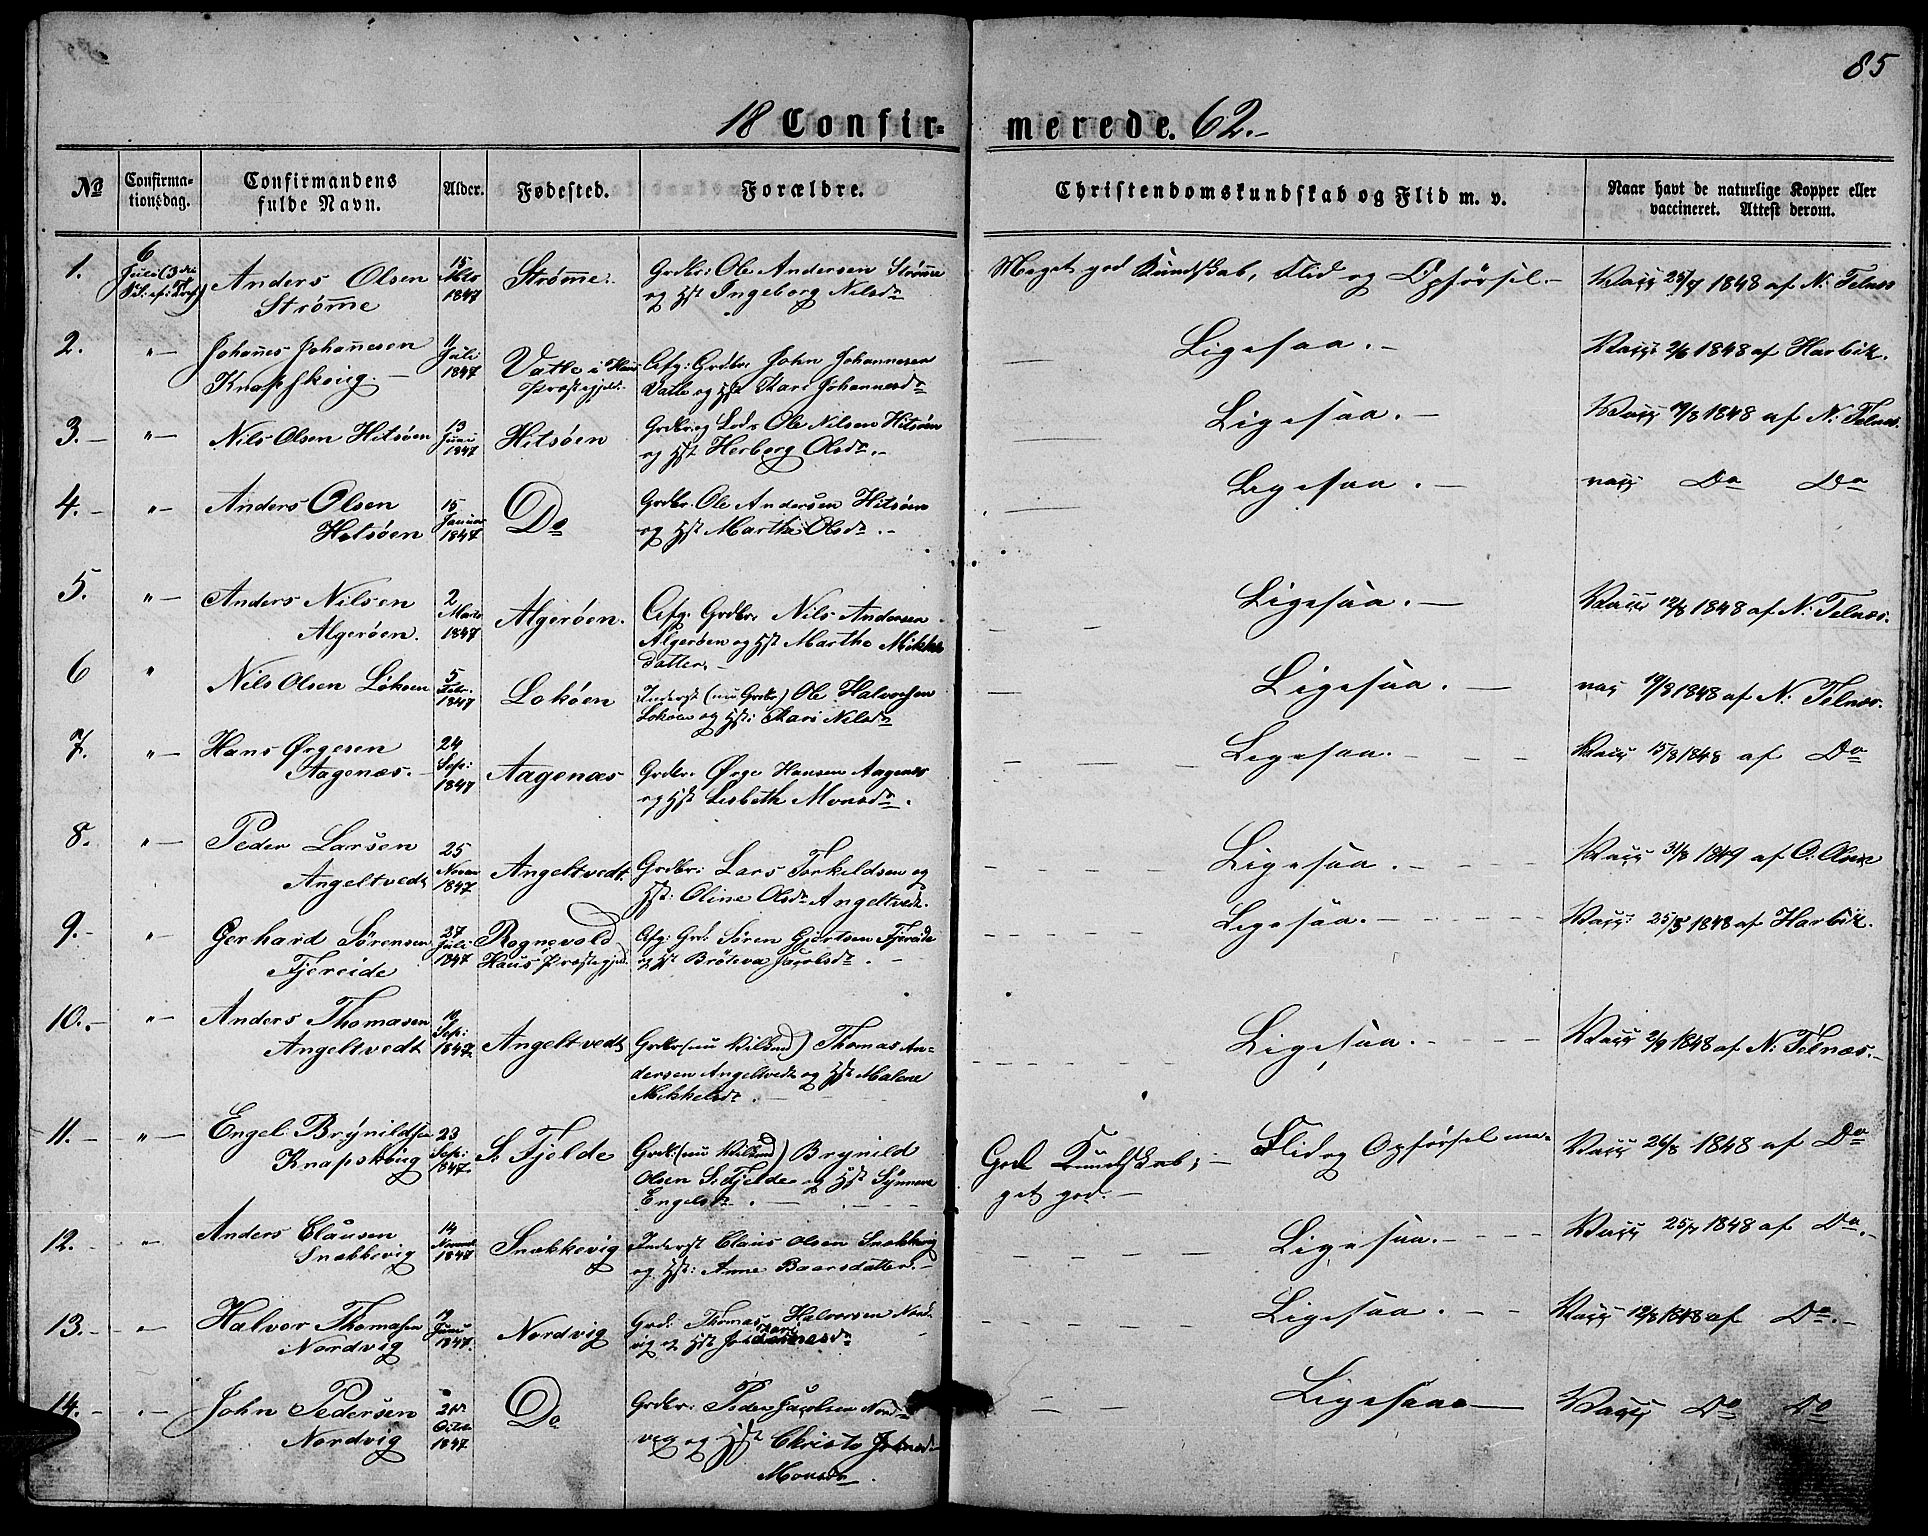 85
18 Confir- merede. 62.-
No
Confirma-
tionsdag.
Confirmandens
fulde Navn.
Alder.
Fødested.
Forældre.
Christendomskundskab og Flid m. v.
Naar havt de naturlige Kopper eller
vaccineret. Attest derom.
1.
6
Juli (3 die
Anders Olsen
Strøm̄e
15
1847
Strøm̄e.
Grdbr: Ole Andersen Strøm̄e
og Hst Ingeborg Nilsdr
Meget god Kundskab, Flid og Opførsel.-
Vacc 25/7 1848 af N: Telnes
2.
"-
Johan̄es Johan̄esen
Knapskoug.
11
Juli
1847
Vatle i Haus
Præstegjeld.
Afg: Grdbr. John Johannesen
Vatle og Hst Kari Johannesdr
Ligesaa.-
Vacc 2/6 1848 af Harbitz.
3.-
"-
Nils Olsen Hitsøen
13
Juni
1847
Hitsøen
Grdbr. og Lods Ole Nilsen Hitsøen
og Hst Herborg Olsdr.-
Ligesaa.-
Vacc 19/8 1848 af N: Telnes.
4.-
"-
Anders Olsen
Hitsøen
15
Januar
1847
Do
Grdbr. Ole Andersen Hitsøen
og Hst Martha Olsdr.-
Ligesaa.-
vacc Do Do
5.
"-
Anders Nilsen
Algerøen.
2
Marts
1847
Algerøen.
Afg: Grdbr. Nils Andersen
Algerøen og Hst Martha Mikkels
datter.-
Ligesaa.-
Vacc 12/8 1848 af N: Telnæs.
6
"
Nils Olsen Løkøen
5
Febr.
1847
Lokøen
Inderst (nu Grdbr) Ole Halvorsen
Lokøen og Hst: Kari Nilsdr
Ligesaa.-
vac 19/8 1848 af N: Telnæs.
7.
"-
Hans Ørgesen
Aagenæs.-
24
Sep:
1847
Aagenæs
Grdbr. Ørge Hansen Aagenæs
og Hst Lisbeth Monsdr.
Ligesaa.
Vacc 15/8 1848 af Do
8.
"-
Peder Larsen
Angeltvedt
25
Novem
1847
Angeltvedt.
Grdbr: Lars Torkildsen og
Hst: Oline Olsdr Angeltvedt.
Ligesaa.
Vacc 31/8 1849 af O:
9.-
"
Gerhard Sørensen
Fjereide
27
Juli
1847
Rognevold
Haus Præstegjeld.
Afg: Grd: Søren Gjertsen Fjereide
og Hst Brøteva Jacobsdr.-
Ligesaa.
Vacc: 25/5 1848 af Harbitz.
10.-
"-
Anders Thomasen
Angeltvedt
10
Sep:
1847
Angeltvedt
Grdbr (nu Vilk̄nd) Thomas An-
dersen Angeltvedt og Hst Malene
Mikkelsdr.
Ligesaa.
Vacc 2/9 1848 af N: Telnæs.-
11.-
"-
Engel Brynildsen
Knapskoug
23
Sep:
1847
S. Fjelde
Grdbr: (nu Vilk̄nd) Brynild
Olsen S. Fjelde og Hst Synneve
Engelsdr.-
God Kundskab;- Flid og Opførsel me-
get god.-
Vacc 26/8 1848 af Do
12.-
"
Anders Clausen
Snekkevig
14
Novemb
1847
Snekkevig
Inderst Claus Olsen Snekkevig
og Hst: Anne Baarsdatter.-
Ligesaa.
Vacc 25/7 1848 af Do.-
13.-
"-
Halvor Thomasen
Nordvig
Juni
1847.
Nordvig
Grd: Thomas Halvorsen Nord-
vig og Hst Johannesdr
Ligesaa.
Vacc 12/8 1848 af Do.-
14.-
"-
John Pedersen
Nordvig
Octob
1847
Do
Grdbr: Peder Jacobsen Nord-
vig og Hst Christo
Monsdr.
Ligesaa
Vacc Do Do